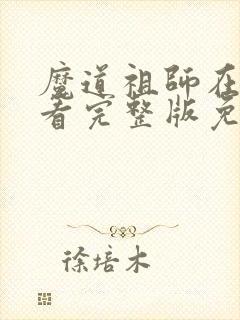 魔道祖師在
看完整版免
徐培木